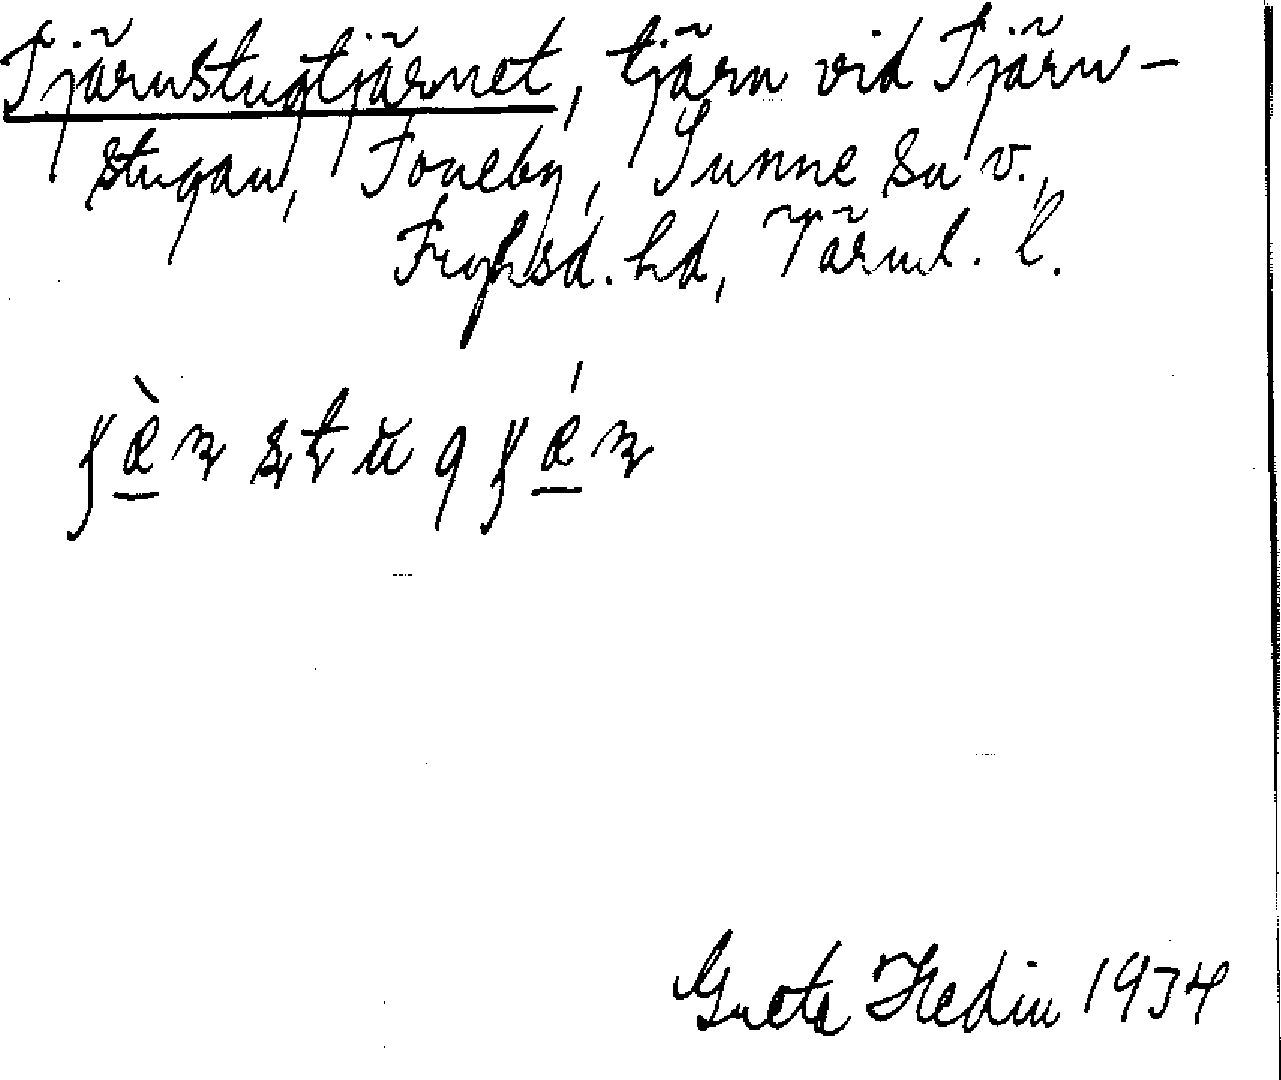 Tjärnstugtjärnet, tjärn vid Tjärn-
stugan, Toneby, Sunne sn v.,
Fryksd. hd, Värml. l.
Greta Hedin 1934